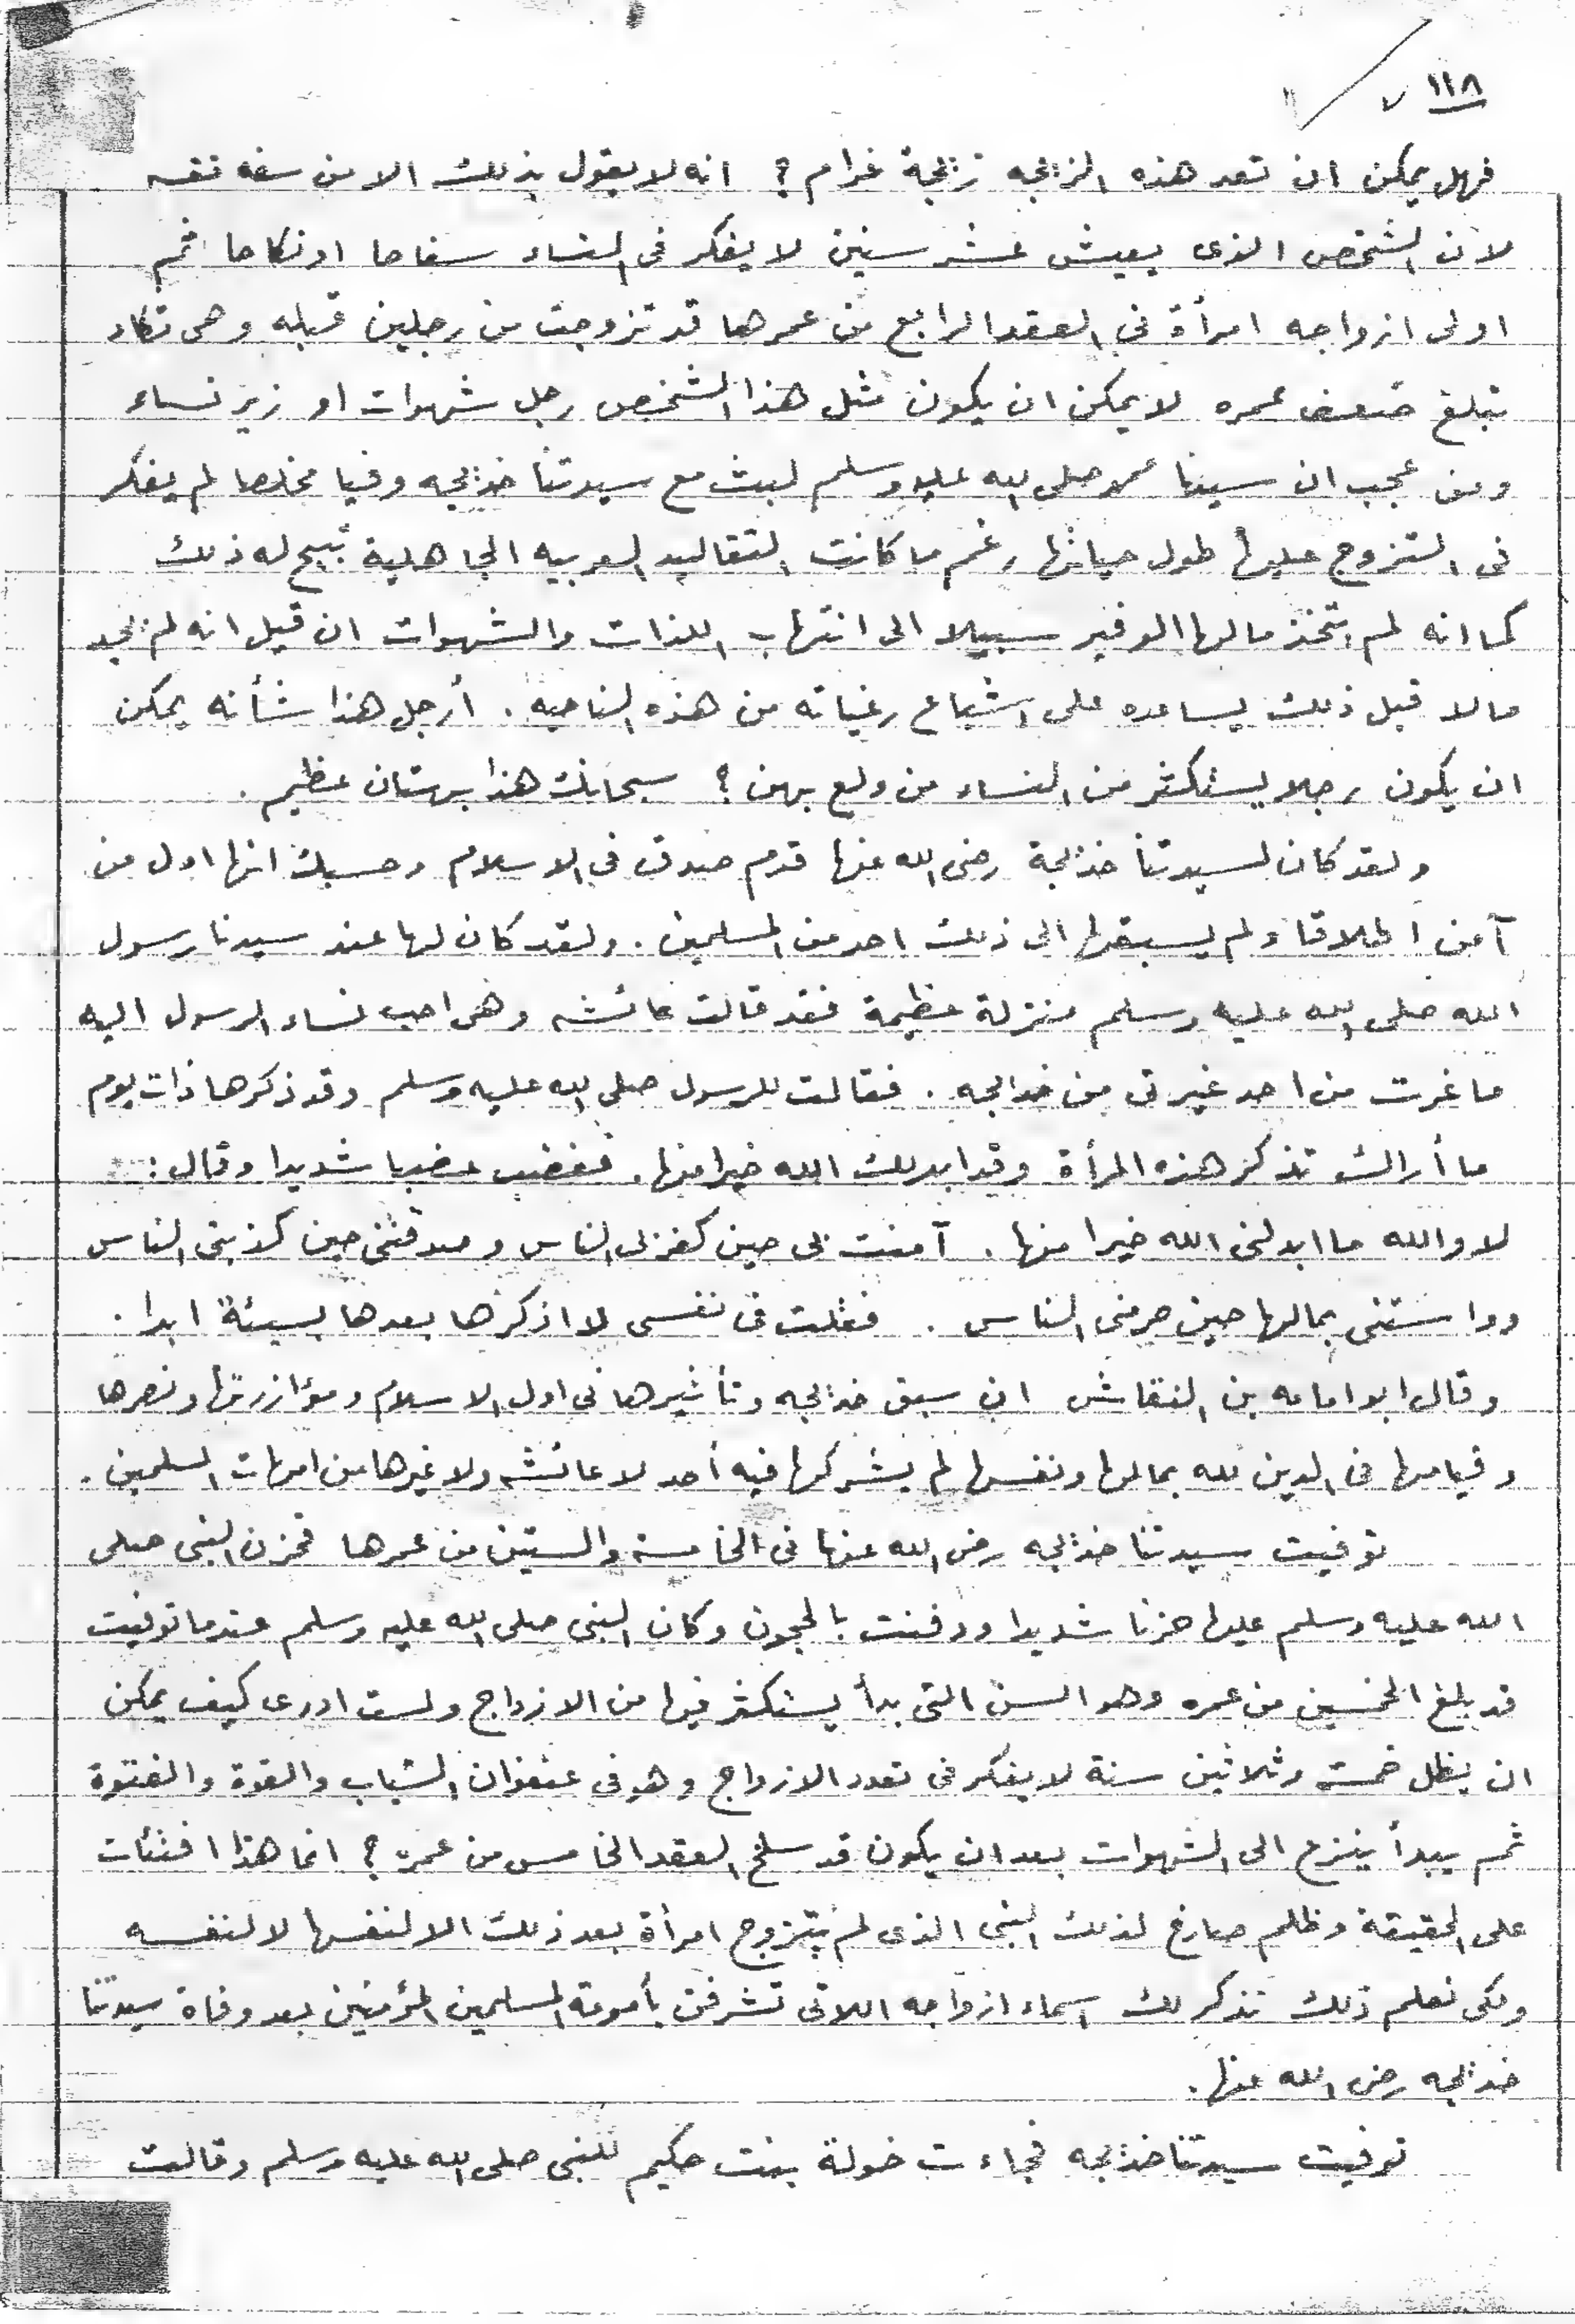 ١١٨
فهل يمكن ان تعد هذه الزيجه زيجة غرام ؟ انه لا يقول بذلك الا من سفه نفسه
لان الشخص الذى يعيش عشر سنين لا يفكر فى النساء سفاحا او نكاحا ثم
اولى ازواجه امرأة فى العقد الرابع من عمرها قد تزوجت من رجلين قبله وهى تكاد
تبلغ ضعف عمره لا يمكن ان يكون مثل هذا الشخص رجل شهوات او زير نساء
ومن عجب ان سيدنا محمد صلى الله عليه وسلم لبث مع سيدتنا خديجه وفيا مخلصا لم يفكر
فى التزوج عليها طول حياتها رغم ما كانت التقاليد العربيه الجاهلية تبيح له ذلك
كما انه لم يتخذ مالها الوفير سبيلا الى انتهاب اللذات والشهوات ان قيل انه لم يجد
مالا قبل ذلك يساعده على اشباع رغباته من هذه الناحيه . أرجل هذا شأنه يمكن
ان يكون رجلا يستكثر من النساء من ولع بهن ؟ سبحانك هذا بهتان عظيم .
ولقد كان لسيدتنا خديجة رضى الله عنها قدم صدق فى الاسلام وحسبك انها اول من
آمن اطلاقا ولم يسبقها الى ذلك احد من المسلمين . ولقد كان لها عند سيدنا رسول
الله صلى الله عليه وسلم منزلة عظيمة فقد قالت عائشه وهى احب نساء الرسول اليه
ما غرت من احد غيرتى من خديجه . فقالت للرسول صلى الله عليه وسلم وقد ذكرها ذات يوم
ما أراك تذكر هذه المرأة وقد ابدلك الله خيرا منها . فغضب غضبا شديدا وقال :
لا والله ما ابدلنى الله خيرا منها . آمنت بى حين كفر بى الناس وصدقتنى حين كذبنى الناس
وواستنى بمالها حين حرمنى الناس . فقلت فى نفسى لا اذكرها بعدها بسيئة ابدا .
وقال ابو امامه بن النقاش ان سبق خديجه وتأثيرها فى اول الاسلام ومؤازرتها ونصرها
وقيامها فى الدين لله بمالها ونفسها لم يشركها فيه أحد لا عائشه ولا غيرها من امهات المسلمين .
توفيت سيدتنا خديجه رضى الله عنها فى الخامسة والستين من عمرها فحزن النبى صلى
الله عليه وسلم عليها حزنا شديدا ودفنت بالحجون وكان النبى صلى الله عليه وسلم عندما توفيت
قد بلغ الخمسين من عمره وهو السن التى بدأ يستكثر فيها من الازواج ولست ادرى كيف يمكن
ان يظل خمسة وثلاثين سنة لا يفكر فى تعدد الازواج وهو فى عنفوان الشباب والقوة والفتوة
ثم يبدأ ينزع الى الشهوات بعد ان يكون قد سلخ العقد الخامس من عمره ؟ انما هذا افتئات
على الحقيقة وظلم صارخ لذلك النبى الذى لم يتزوج امرأة بعد ذلك الا لنفسها لا لنفسه
ولكى تعلم ذلك نذكر لك اسماء ازواجه اللاتى تشرفن بأمومة المسلمين المؤمنين بعد وفاة سيدتنا
خديجه رضى الله عنها .
توفيت سيدتنا خديجه فجاءت خولة بنت حكيم للنبى صلى الله عليه وسلم وقالت